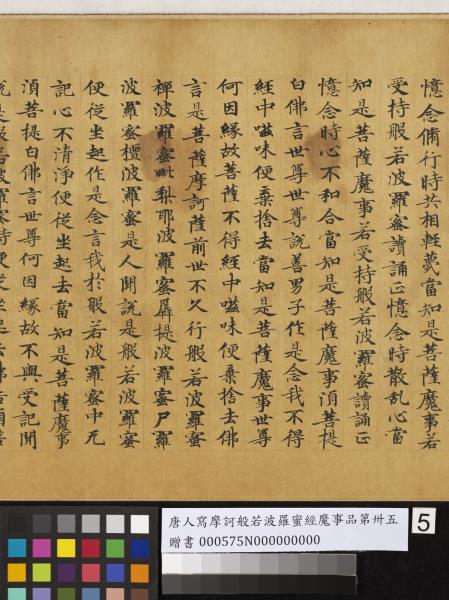 憶念脩行時共相輕蔑當知是菩薩魔事若
受持般若波羅蜜讀誦正憶念時散乱心當
知是菩薩魔事若受持般若波羅蜜讀誦正
憶念時心不和合當知是菩薩魔事須菩提
白佛言世尊世尊說善男子作是念我不得
經中滋味便棄捨去當知是菩薩魔事世尊
何因緣故菩薩不得經中滋味便棄捨去佛
言是菩薩摩訶薩前世不久行般若波羅蜜
禪波羅蜜毗梨耶波羅蜜羼提波羅蜜尸羅
波羅蜜檀波羅蜜是人聞說是般若波羅蜜
便從坐起作是念言我於般若波羅蜜中无
記心不清淨便從坐起去當知是菩薩魔事
須菩提白佛言世尊何因緣故不與受記聞
說是般若波羅蜜時便從坐起去佛告須菩
唐人寫摩訶般若波羅蜜經魔事品第卅五
贈書 000575N000000000
5